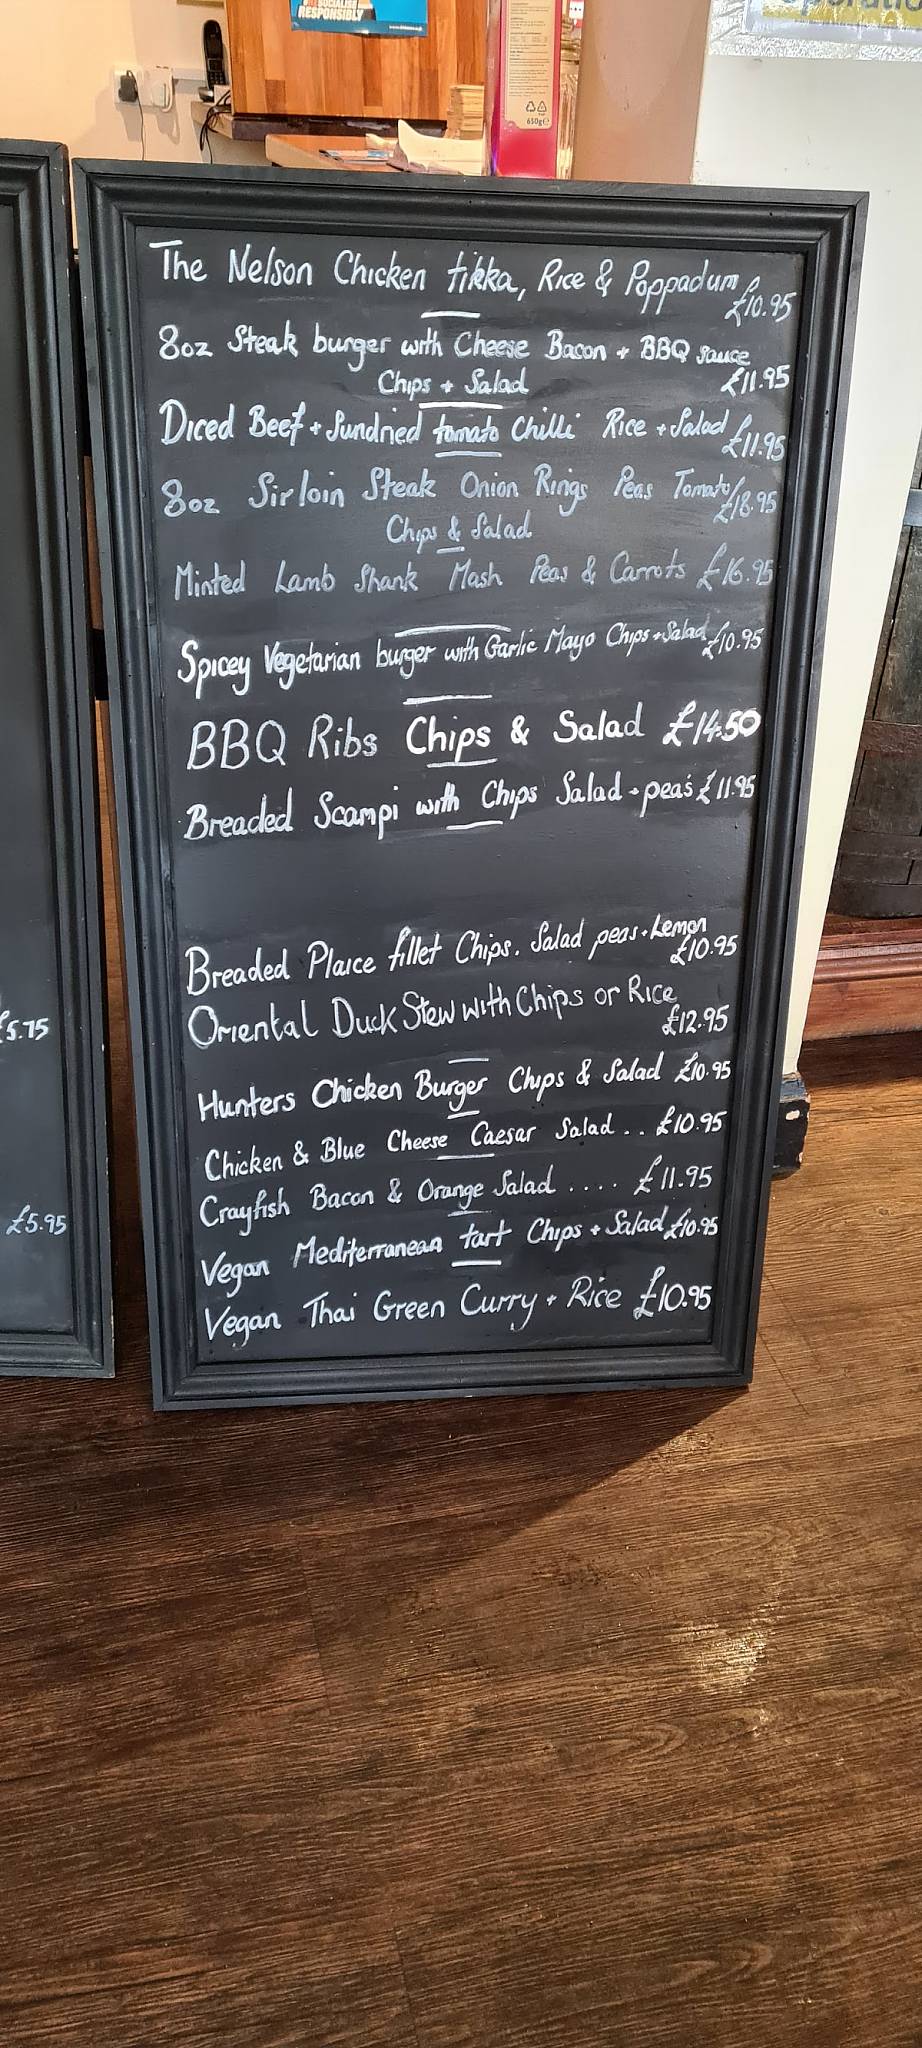 SOCIALISE
RESPONSIBLY
650g e
The Nelson Chicken tikka, Rice & Poppadum £10.95
8oz Steak burger with Cheese Bacon + BBQ sauce
Chips + Salad £11.95
Diced Beef + Sundried tomato Chilli Rice + Salad £11.95
8oz Sirloin Steak Onion Rings Peas Tomato £18.95
Chips & Salad
Minted Lamb Shank Mash Peas & Carrots £16.95
Spicey Vegetarian burger with Garlic Mayo Chips + Salad £10.95
BBQ Ribs Chips & Salad £14.50
Breaded Scampi with Chips Salad + pea's £11.95
Breaded Plaice fillet Chips. Salad peas + Lemon
£10.95
Oriental Duck Stew with Chips or Rice
£12.95
Hunters Chicken Burger Chips & Salad £10.95
Chicken & Blue Cheese Caesar Salad .. £10.95
Crayfish Bacon & Orange Salad .... £11.95
Vegan Mediterranean tart Chips + Salad £10.95
Vegan Thai Green Curry + Rice £10.95
£5.75
£5.95